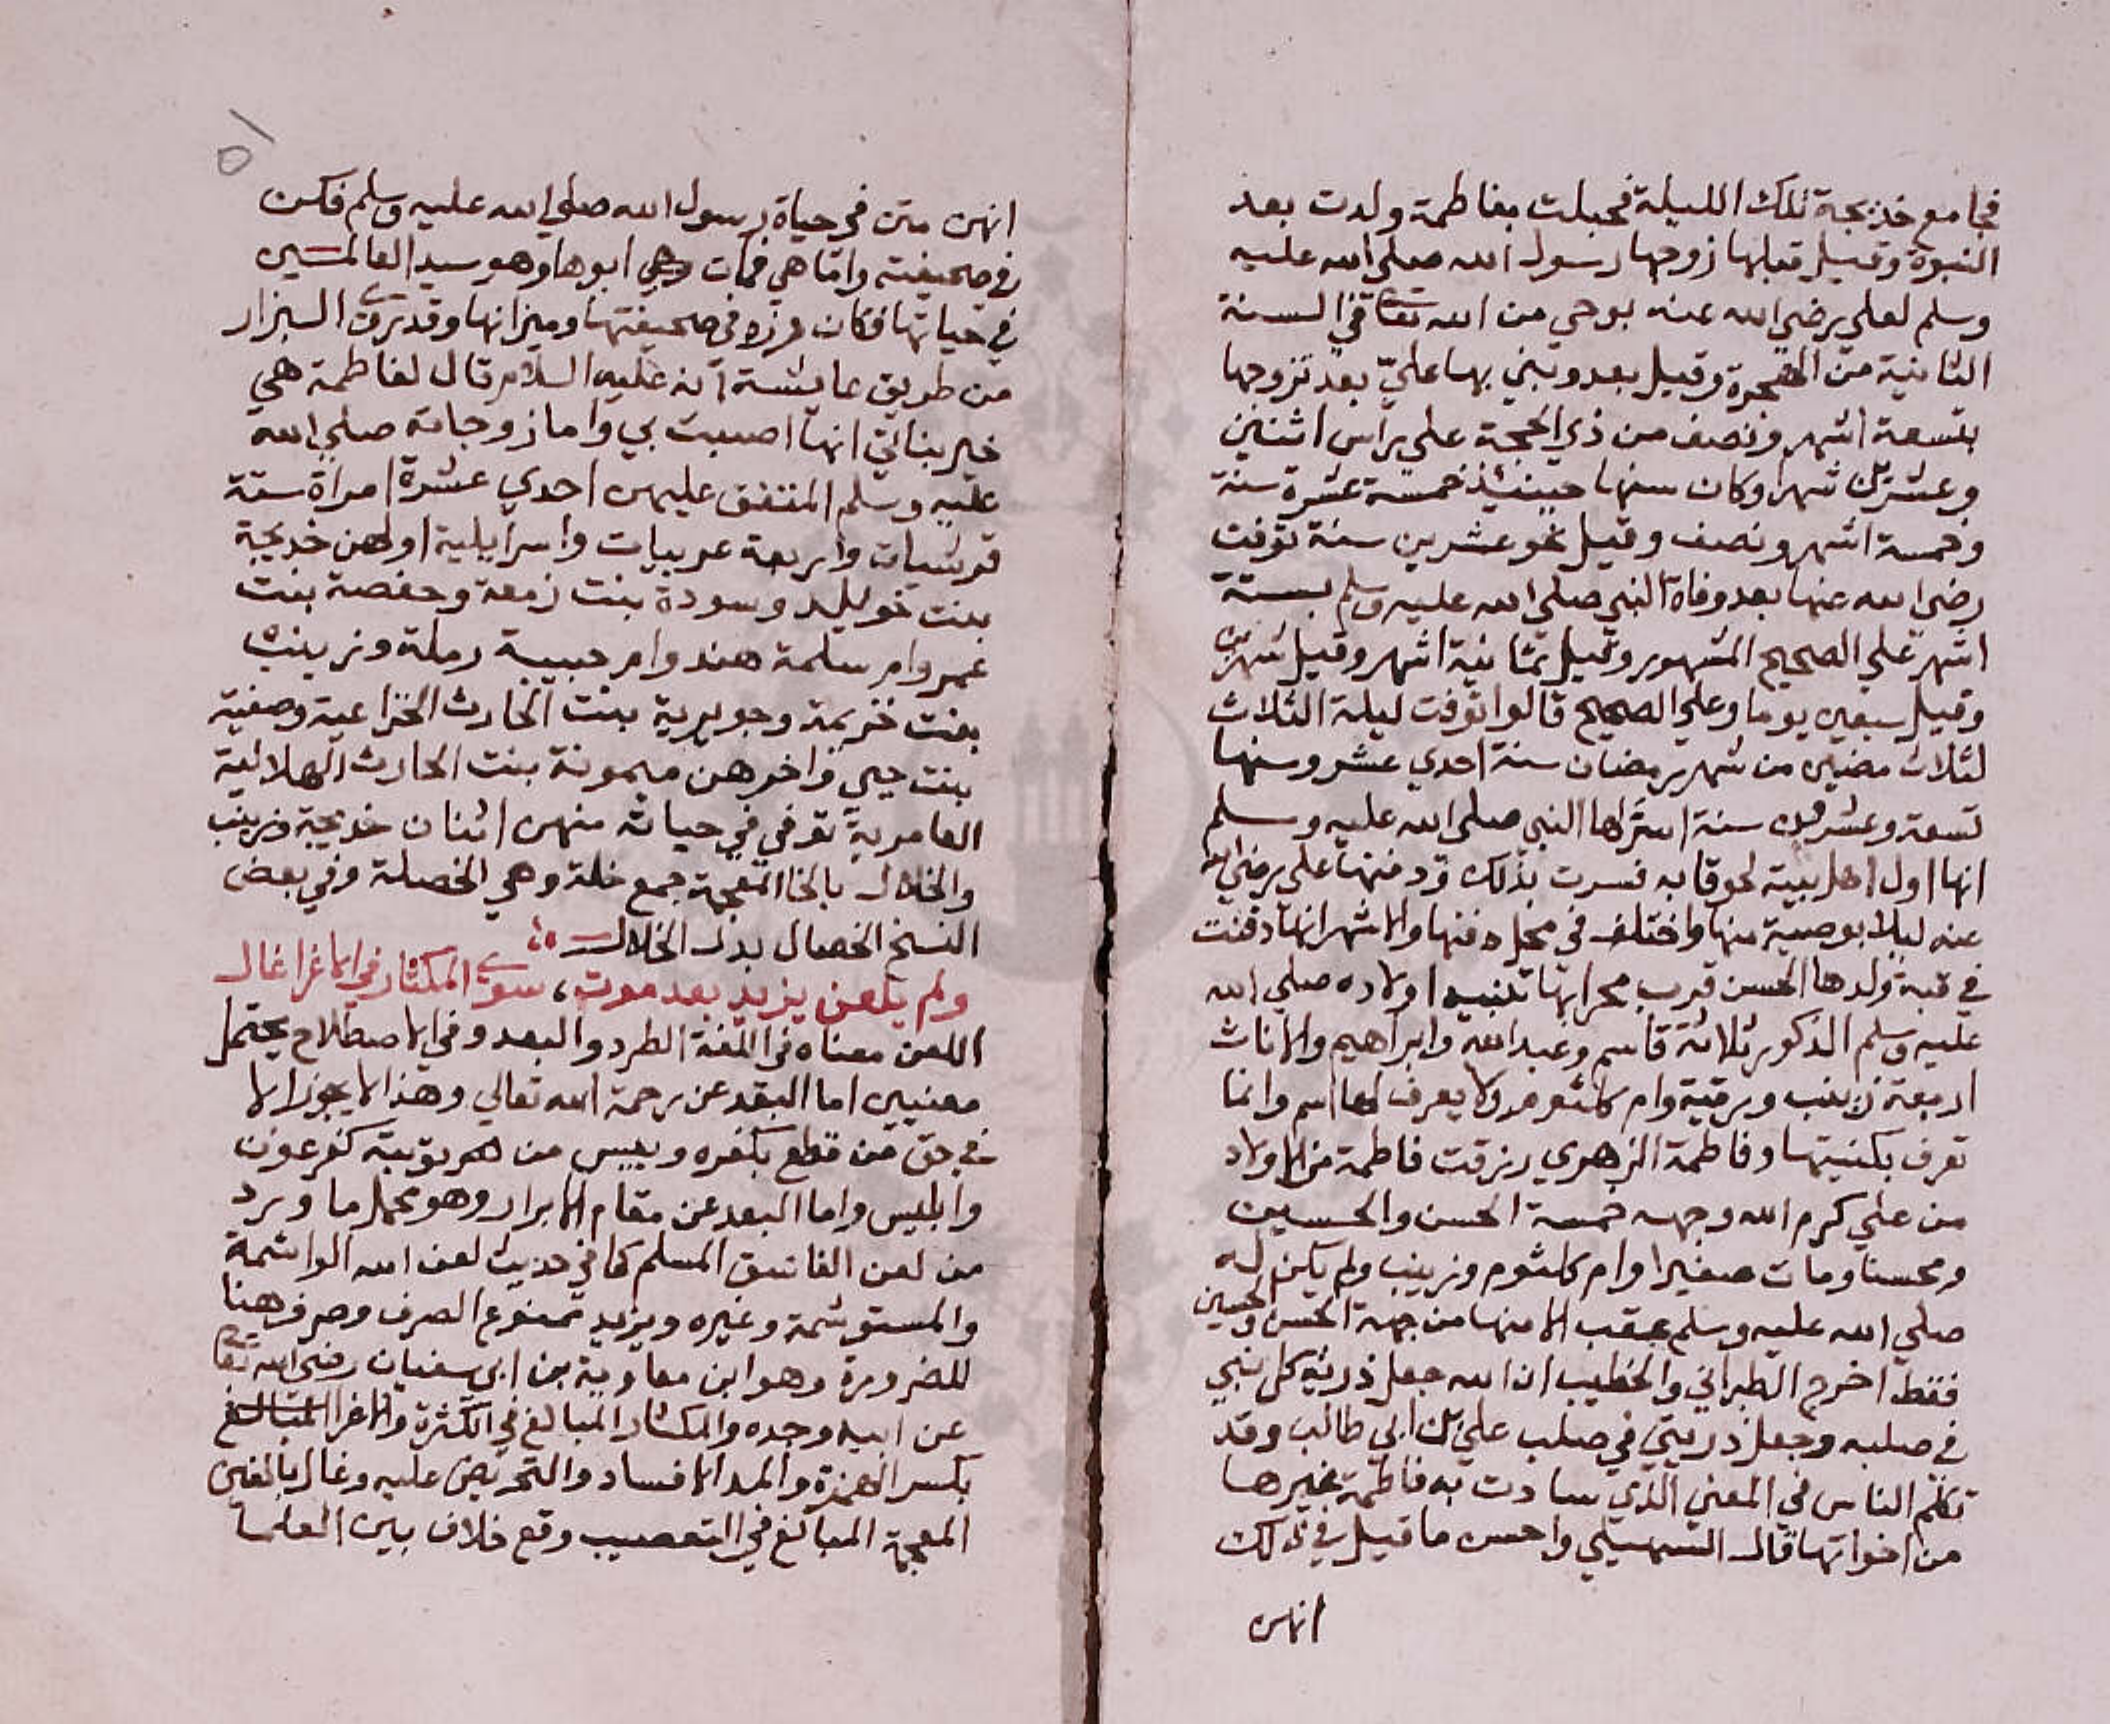 فجامع خديجة تلك الليلة فحبلت بفاطمة ولدت بعد
النبوة وقيل قبلها زوجها رسول الله صلى الله عليه
وسلم لعلي رضي الله عنه بوحي من الله تعا في السنة
الثانية من الهجرة وقيل بعد وبني بها عليّ بعد تزوجها
بتسعة اشهر ونصف من ذي الحجة علي راس اثنين
وعشرين شهرا وكان سنها حينئذ خمسة عشرة سنة
وخمسة اشهر ونصف وقيل نحو عشرين سنة توفت
رضي الله عنها بعد وفاة النبي صلى الله عليه وسلم بستة
اشهر علي الصحيح المشهور وقيل بثمانية اشهر وقيل شهرين
وقيل سبعين يوما وعلي الصحيح قالوا توفت ليلة الثلاث
لثلاث مضين من شهر رمضان سنة احدي عشر وسنها
تسعة وعشرون سنة اسرّ لها النبي صلى الله عليه وسلم
انها اول اهل بيته لحوقا به فسرت بذلك ودفنها علي رضي الله
عنه ليلا بوصية منها واختلف في محل دفنها والاشهر انها دفنت
في قبة ولدها الحسن قرب محرابها تنبيه اولاده صلي الله
عليه وسلم الذكور ثلاثة قاسم وعبدالله وابراهيم والاناث
اربعة زينب ورقية وام كلثوم ولا يعرف لها اسم وانما
تعرف بكنيتها وفاطمة الزهري رزقت فاطمة من الاولاد
من علي كرم الله وجهه خمسة الحسن والحسين
ومحسنا ومات صغيرا وام كلثوم وزينب ولم يكن له
صلي الله عليه وسلم عقب الا منها من جهة الحسن والحسين
فقط اخرج الطبراني والخطيب ان الله جعل ذرية كل نبي
في صلبه وجعل ذريتي في صلب علي بن ابي طالب وقد
تكلم الناس في المعني الذي سادت به فاطمة غيرها
من اخواتها قال السهيلي واحسن ما قيل في ذلك
انهن
انهن متن في حياة رسول الله صلي الله عليه وسلم فكن
في صحيفته واما هي فمات ابوها وهو سيد العالمين
في حياتها فكان رزه في صحيفتها وميزانها وقد روي البزار
من طريق عايشة انه عليه السلام قال لفاطمة هي
خير بناتي انها اصيبت بي واما زوجاته صلي الله
عليه وسلم المتفق عليهن احدي عشرة امراة ستة
قرشيات واربعة عربيات واسرايلية اولهن خديجة
بنت خويلد وسودة بنت زمعة وحفصة بنت
عمر وام سلمة هند وام حبيبة رملة وزينب
بنت خزيمة وجويرية بنت الحارث الخزاعية وصفية
بنت حيي واخرهن ميمونة بنت الحارث الهلالية
العامرية توفي في حياته منهن اثنان خديجة وزينب
والخلال بالخا المعجمة جمع خلة وهي الخصلة وفي بعض
النسخ الخصال بدل الخلال
ولم يلعن يزيد بعد موت، سوي المكثار في الاغرا غال
اللعن معناه في اللغة الطرد والبعد وفي الاصطلاح يحتمل
معنيين اما البعد عن رحمة الله تعالي وهذا لا يجوز الا
في حق من قطع بكفره وييس من هم توبته كفرعون
وابليس واما البعد عن مقام الابرار وهو محمل ما ورد
من لعن الفاسق المسلم كما في حديث لعن الله الواشمة
والمستوشمة وغيره ويزيد ممنوع الصرف وصرفه هنا
للضرورة وهو ابن معاوية بن ابي سفيان رضي الله تعا
عن ابيه وجده والمكثار المبالغ في الكثرة والاغرا المبالغ
بكسر الهمزة والمد الافساد والتحريض عليه وغال بالغين
المعجمة المبالغ في التعصيب وقع خلاف بين العلما